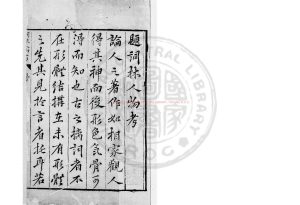 題詞林人物考
論人之著作如相家觀人
得其神而後形色氣骨可
得而知也古之摛詞者不
在形體結撰在未有形體
之先其見於言者託耳若
LIBRARY